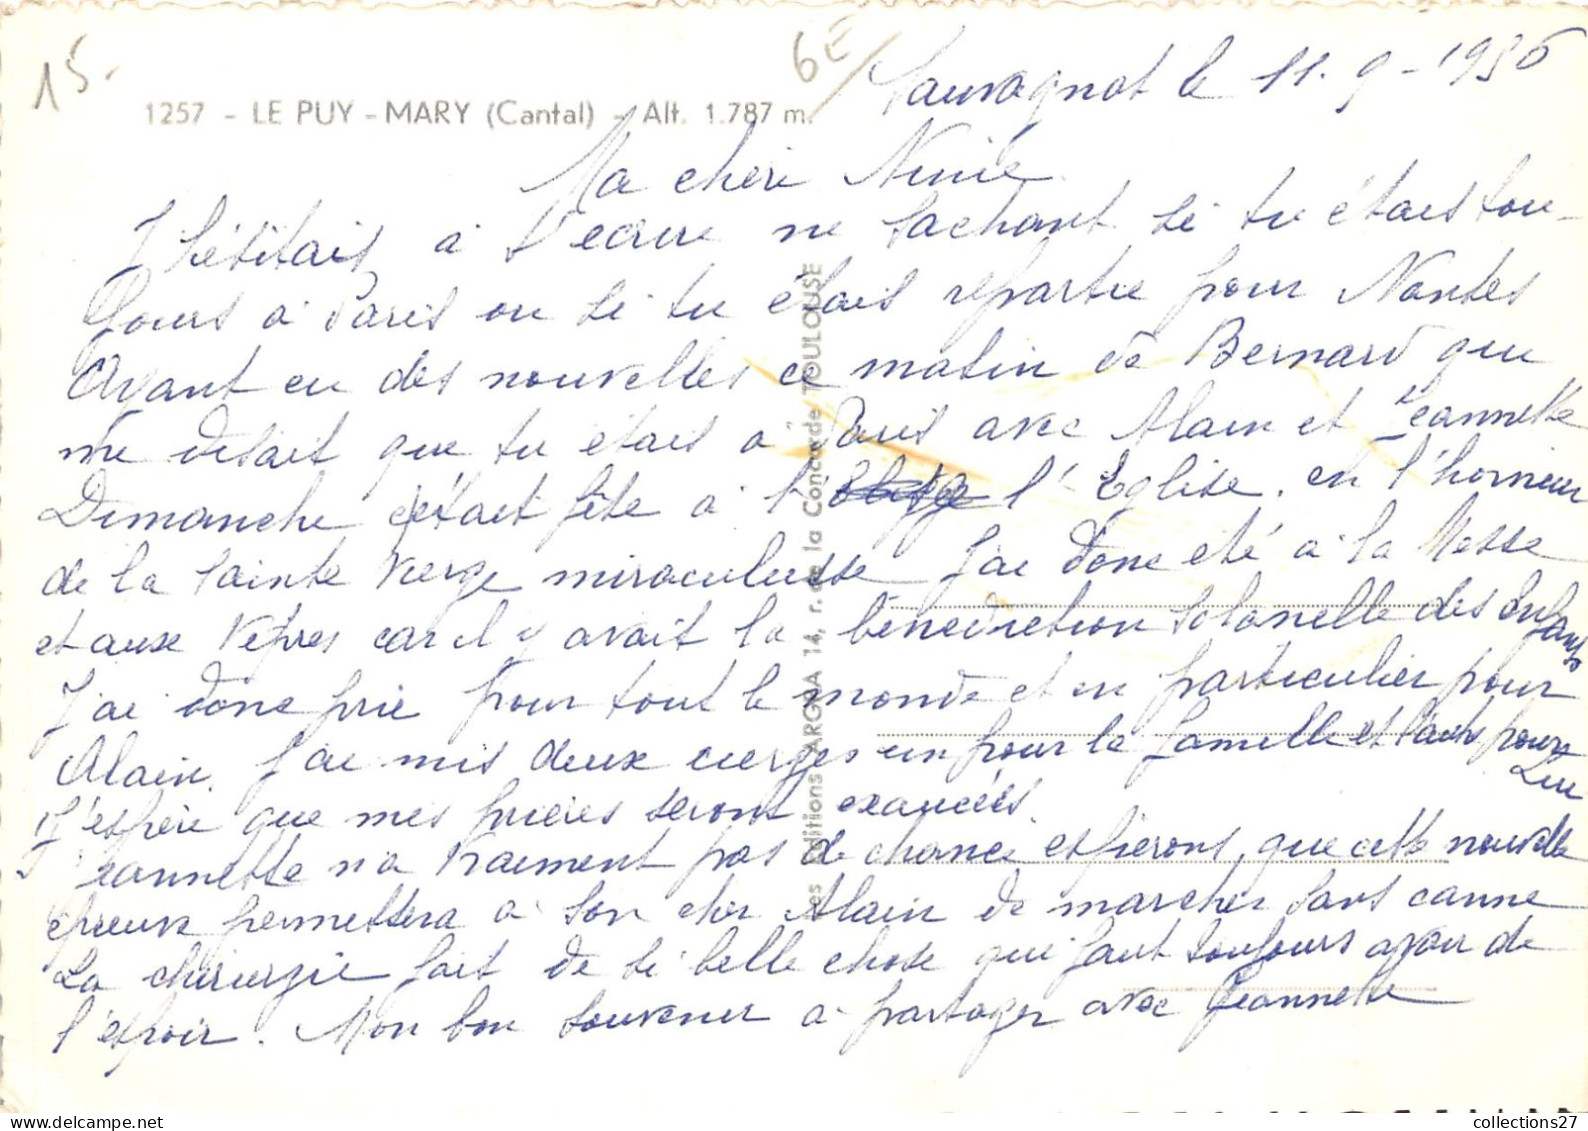 15.
6E
Sauvagnat le 11.9-1956
1257 - LE PUY - MARY (Cantal) - Alt. 1.787 m.
Ma cheri Ninie
J hésitais à t'ecrire ne sachant si tu étais tou-
jours à Paris ou si tu étais repartie pour Nantes
Ayant eu des nouvelles ce matin de Bernard qui
me disait que tu étais a Paris avec Alain et Jeannette
Dimanche c'était fête à l' l'Eglise. en l'honneur
de la Sainte Vierge miraculeusse J'ai donc eté à la Messe
et aux Vêpres car il y avait la bénédiction solanelle des enfants
J'ai donc prié pour tout le monde et en particulier pour
Alain. J'ai mis deux cierges un pour la famille et l'autre pour
Lui
J'espère que mes prieres seront exaucéés.
Jeannette n'a vraiment pas de chance espierons, que cette nouvelle
épreuve permettera à son cher Alain de marcher sans canne
La chirurgie fait de si belle chose qui faut toujours avoir de
l'espoir. Mon bon souvenir a partager avec Jeannette
Les Editions ARGRA 14, r. de la Concorde TOULOUSE
collections27